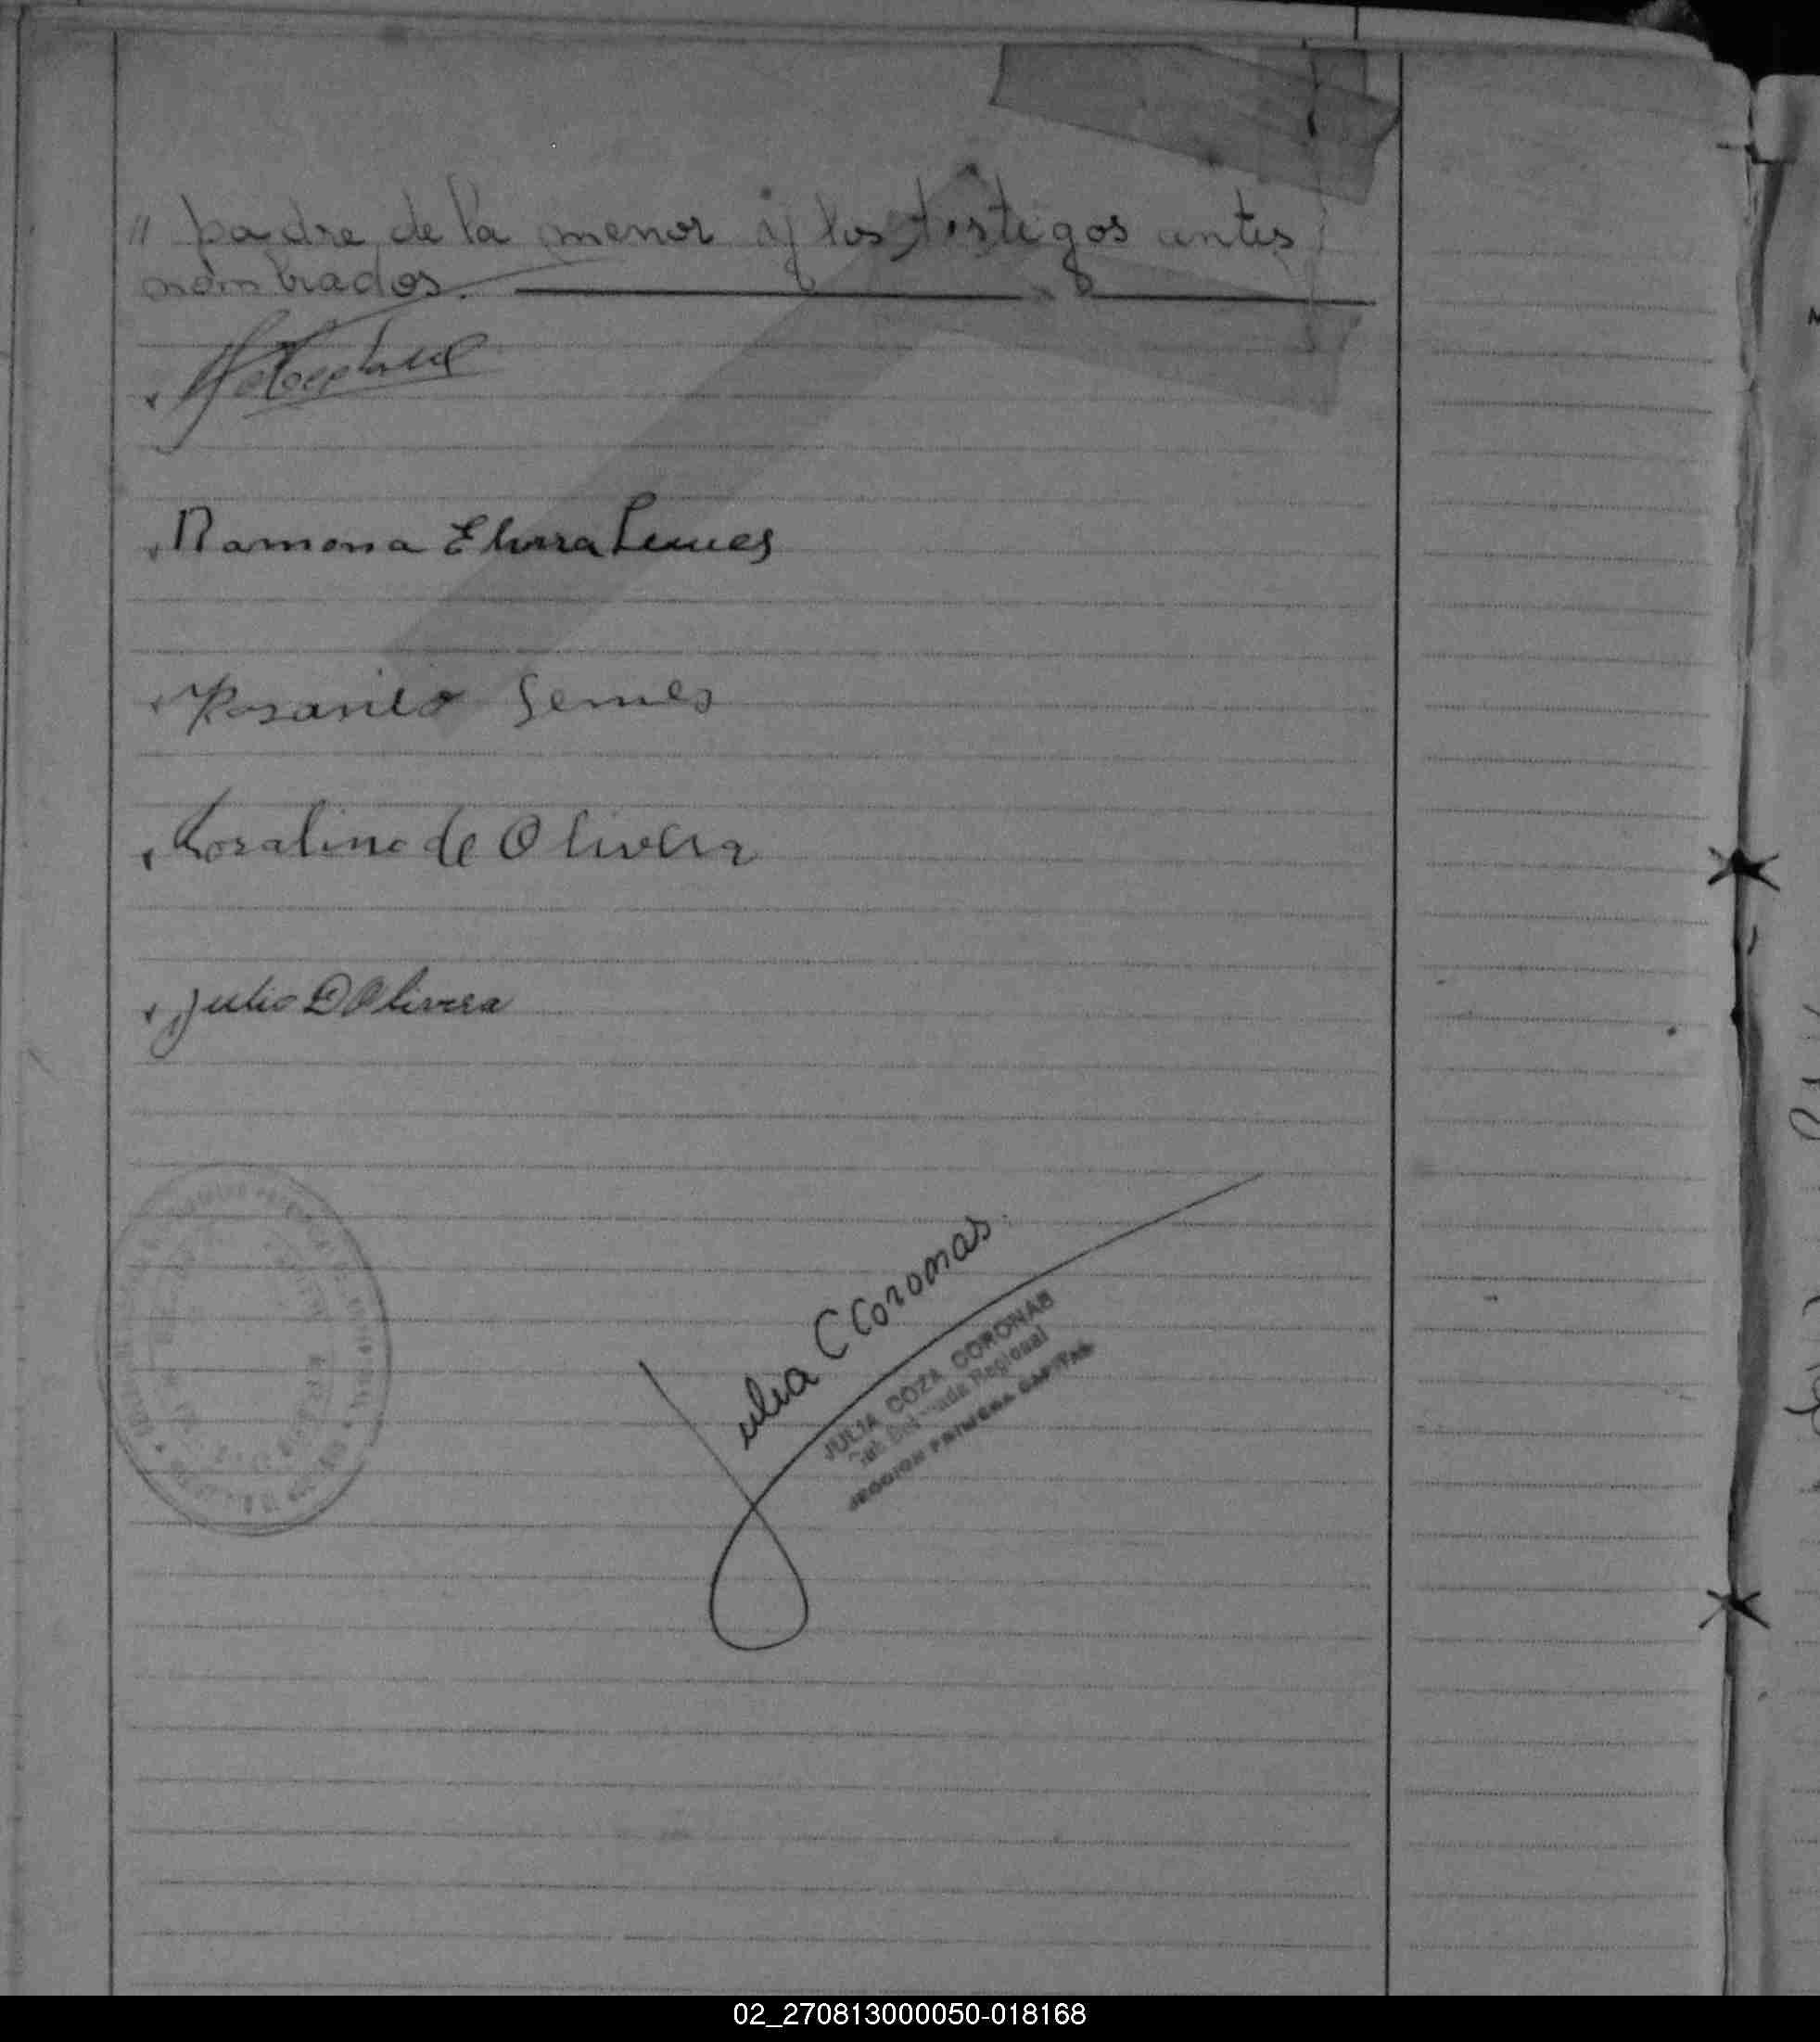 " padre de la menor y los testigos antes
nombrados.
Ramona Elvira Lemes
Rosario Lemes
Rosalino de Olivera
Julio D Olivera
Julia C Coronas
JULIA COZA CORONAS
Sub Delegada Regional
SECCION PRIMERA CAPITAL
02_270813000050-018168